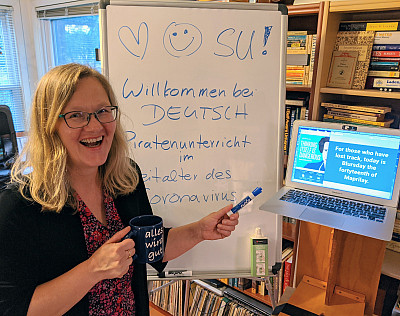 SU!
Willkommen bei
DEUTSCH
Piratenunterricht
im
Zeitalter des
Coronavirus
alles
wird
gut
For those who have
lost track, today is
Blursday the
fortyteenth of
Maprilay.